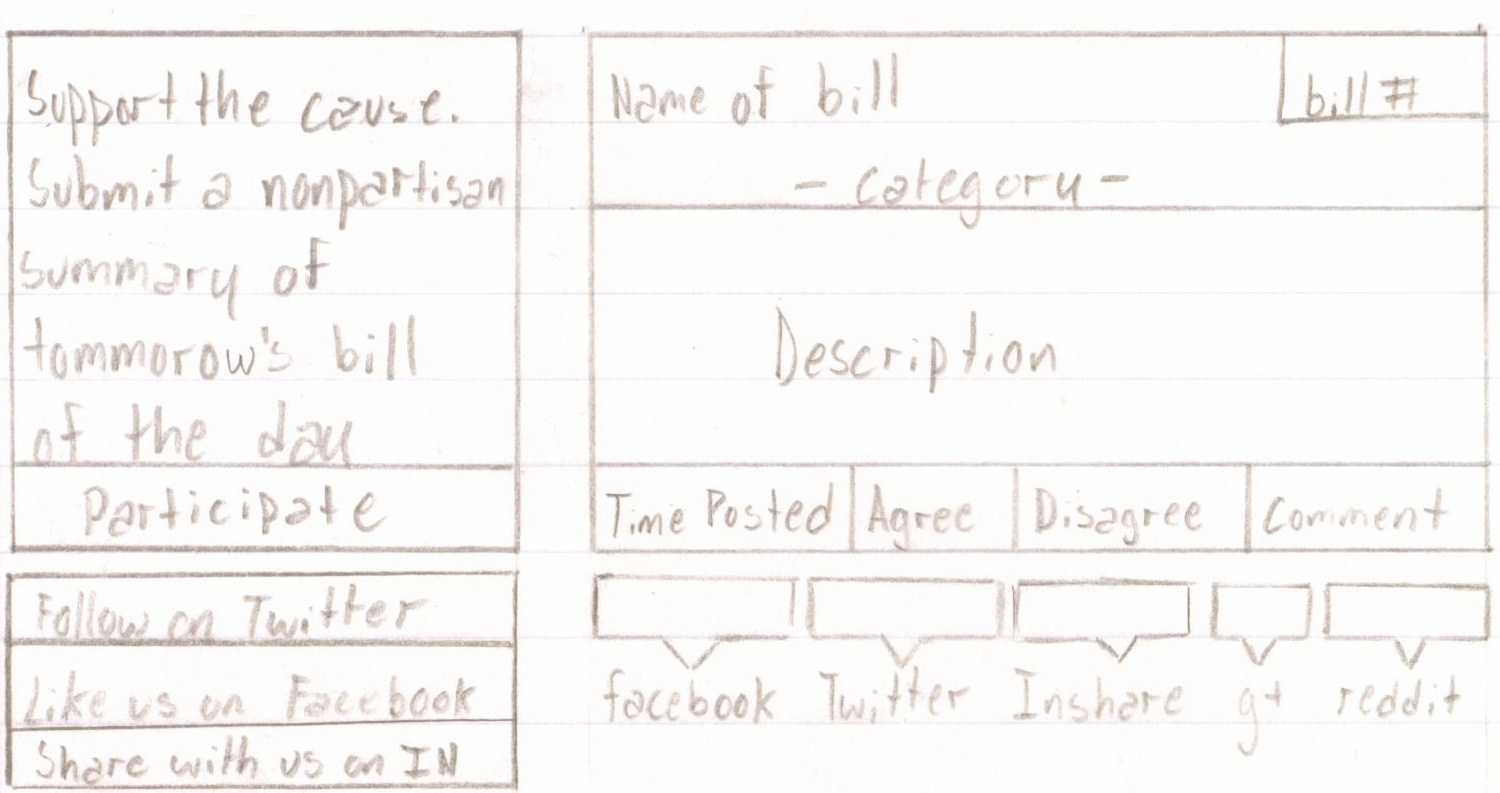 Support the cause.
Submit a nonpartisan
summary of
tommorow's bill
of the day
Participate
Follow on Twitter
Like us on Facebook
Share with us on IN
Name of bill
bill #
- category -
Description
Time Posted
Agree
Disagree
Comment
facebook
Twitter
Inshare
g+
reddit